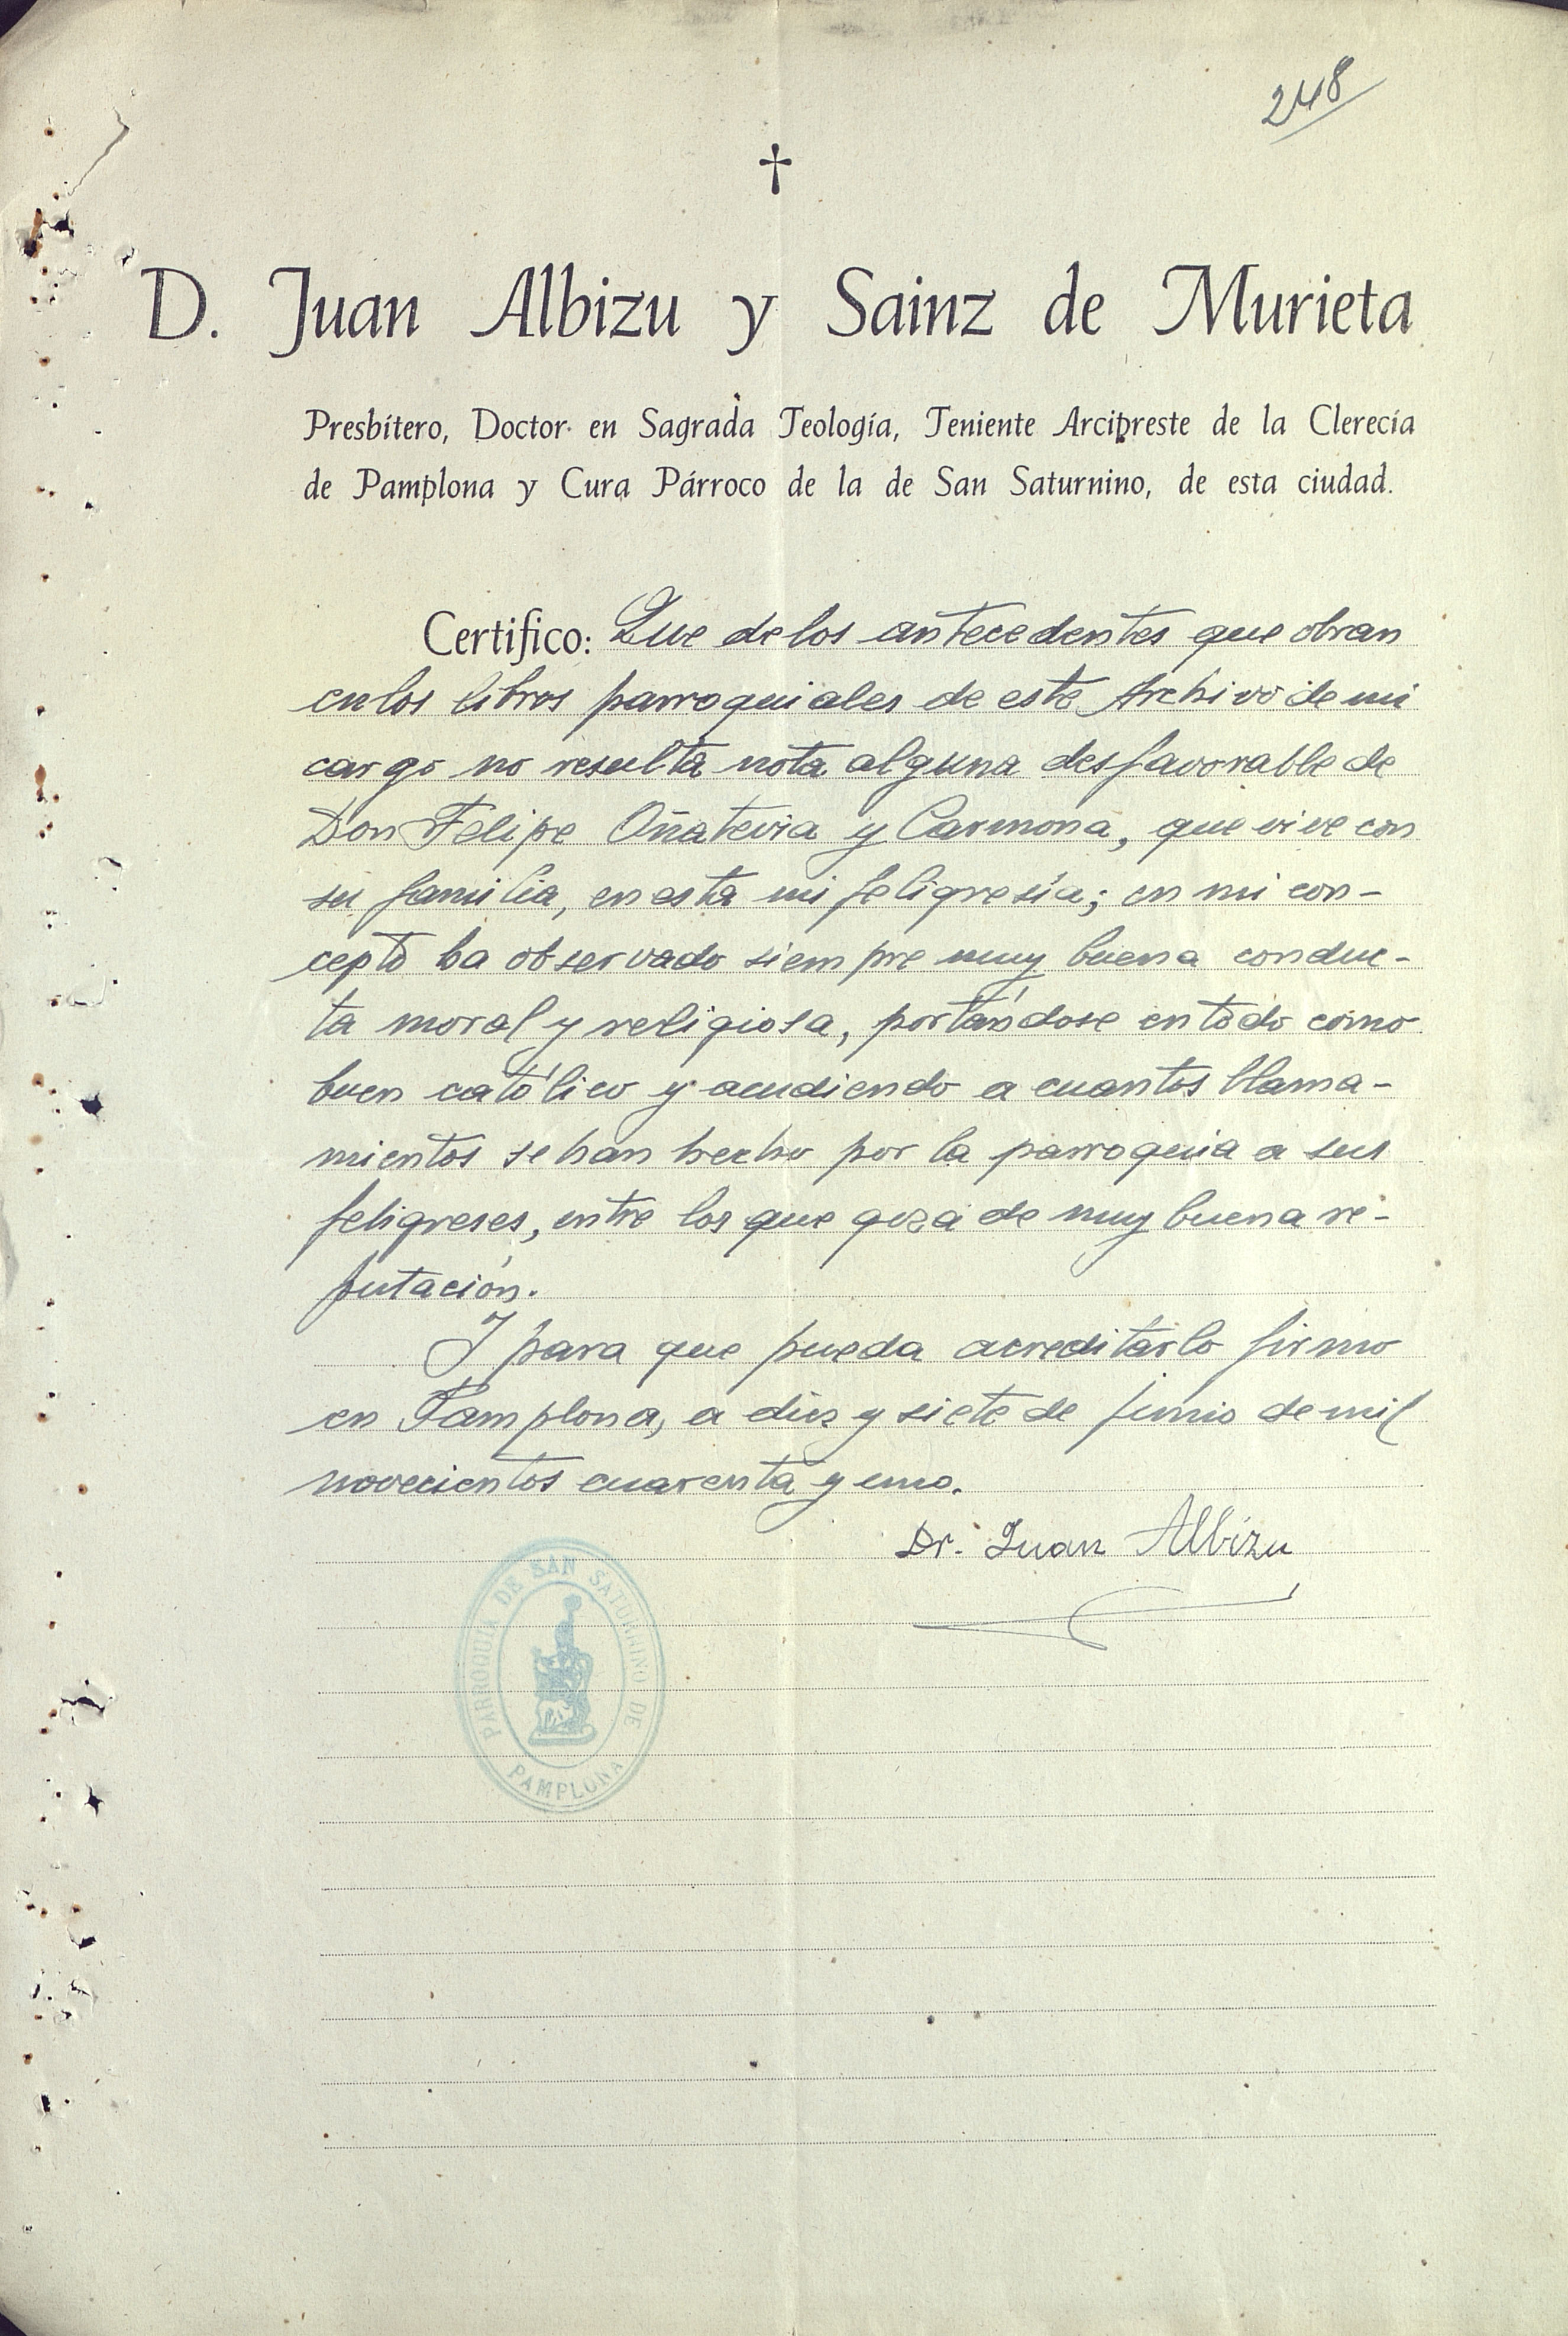 248
†
D. Juan Albizu y Sainz de Murieta
Presbítero, Doctor en Sagrada Teología, Teniente Arcipreste de la Clerecía
de Pamplona y Cura Párroco de la de San Saturnino, de esta ciudad.
Certifico: Que de los antecedentes que obran
en los libros parroquiales de este Archivo de mi
cargo no resulta nota alguna desfavorable de
Don Felipe Oñatevia y Carmona, que vive con
su familia, en esta mi feligresía; en mi con-
cepto ha observado siempre muy buena conduc-
ta moral y religiosa, portándose en todo como
buen católico y acudiendo a cuantos llama-
mientos se han hecho por la parroquia a sus
feligreses, entre los que goza de muy buena re-
putación.
Y para que pueda acreditarlo firmo
en Pamplona, a diez y siete de junio de mil
novecientos cuarenta y uno.
Dr. Juan Albizu
PARROQUIA DE SAN SATURNINO DE
PAMPLONA